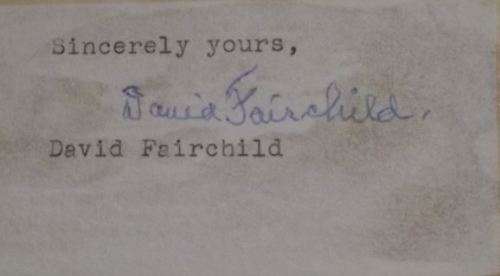 Sincerely yours,
David Fairchild.
David Fairchild